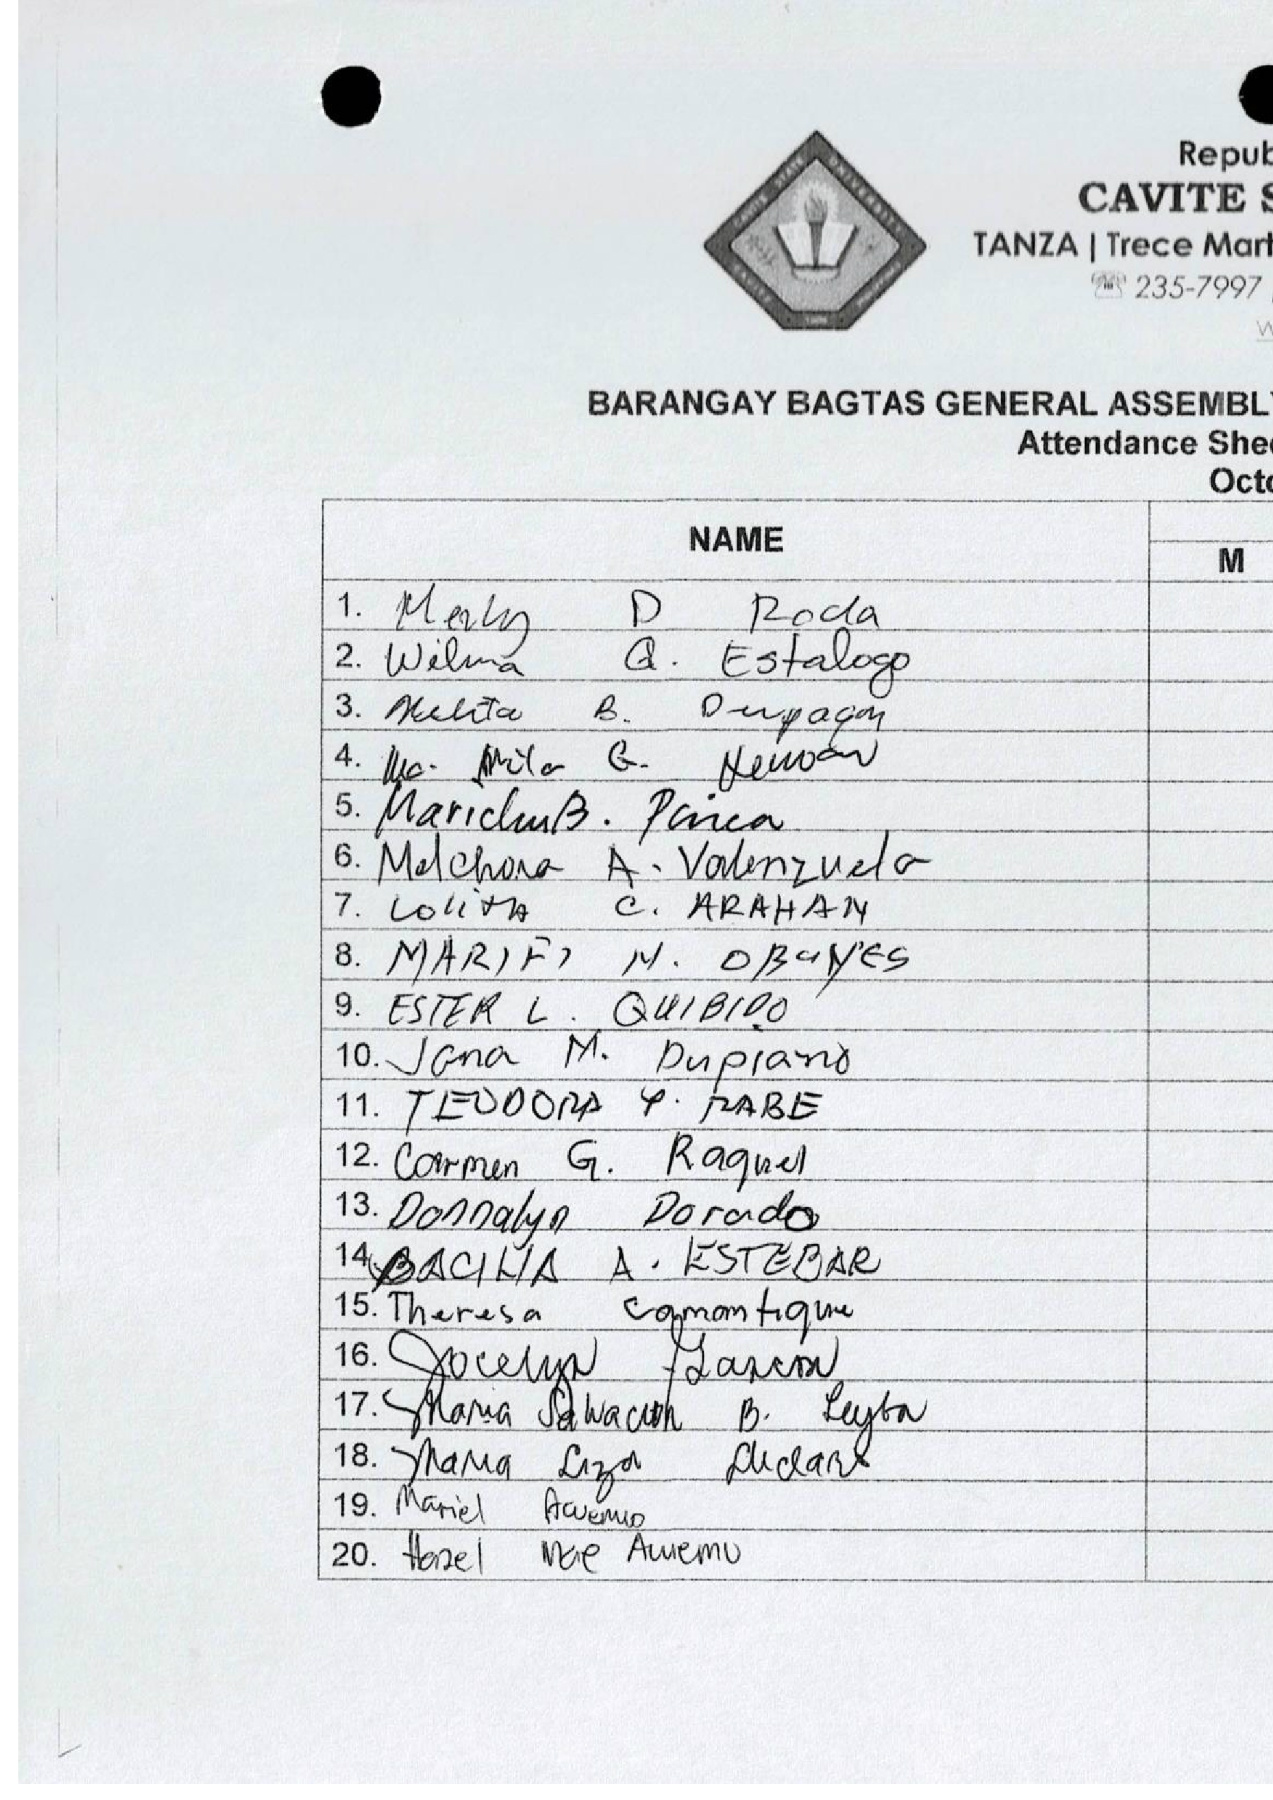 Repub
CAVITE S
TANZA | Trece Mart
☏ 235-7997
W
BARANGAY BAGTAS GENERAL ASSEMBLY
Attendance Shee
Octo
NAME
M
1. Merly D Roda
2. Wilma Q. Estalogo
3. B.
4. Ma. G.
5. Marichu B.
6. Melchora A. Valenzuela
7. Lolita C. ARAHAN
8. M.
9. ESTER L. QUIBIDO
10. Jona M. Dupiano
11. TEODORA Y. RABE
12. Carmen G. Raquel
13. Donnalyn Dorado
14. BACILIA A. ESTEBAR
15. Theresa Camantigue
16. Jocelyn
17. Maria Salvacion B. Leyba
18. Maria Liza
19. Mariel
20. Hazel Mae